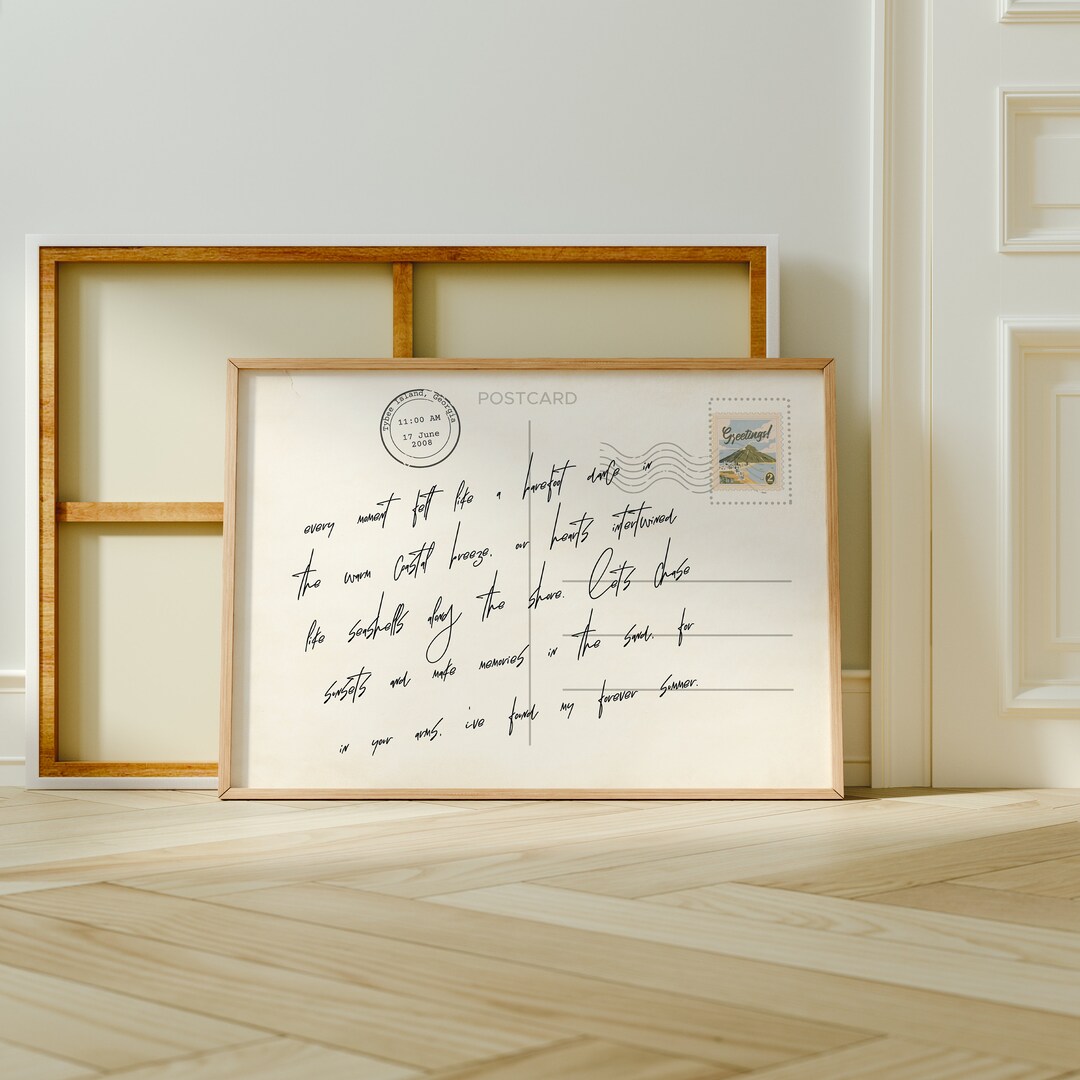 POSTCARD
Tybee Island, Georgia
11:00 AM
17 June
2008
Greetings!
2
every moment felt like a barefoot dance in
the warm coastal breeze. our hearts intertwined
like seashells along the shore. Let's chase
sunsets and make memories in the sand. for
in your arms, i've found my forever summer.